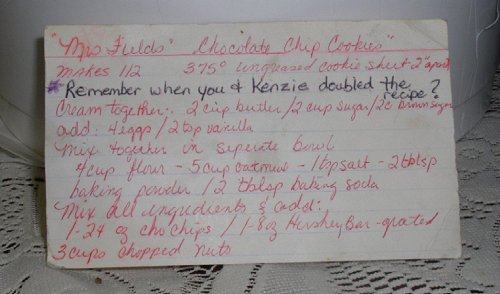 "Mrs Fields" Chocolate Chip Cookies"
makes 112 375° ungreased cookie sheet 2" apart
*Remember when you & Kenzie doubled the recipe?
Cream together:. 2 cup butter/2 cup sugar/2c brown sugar
add: 4 eggs/2 tsp vanilla
Mix together in seperate bowl
4 cup flour - 5 cup oatmeal - 1 tsp salt - 2 tblsp
baking powder / 2 tblsp baking soda
Mix all ingredients & add:
1-24 oz cho chips / 1-8oz Hershey Bar-grated
3 cups chopped nuts